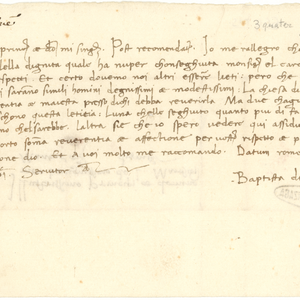 3 quater
prims et mi sing. Post recomendaci. Io me rallegro cho
della dignita quale ha nuper chonseghuita monsig. el care
spetti. Et certo dovemo noi altri essere lieti, pero che
sarano simili homini degnissimi et modestissimi. La chiesa d
et maiesta presso di chi debba reverirla. Ma due chag
chono questa letitia: Luna chelle seghuito quanto piu di fa
mo chelsarebbe. Laltra sie che io spero vedere qui assidu
soma reverentia et affectione per vostri rispetto et p
one dio. Et a voi molto me raccomando. Datum rome
Servitor
Baptista de